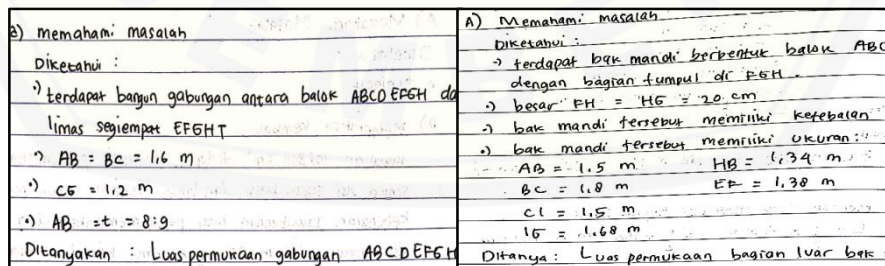 a) memahami masalah
Diketahui :
•) terdapat bangun gabungan antara balok ABCD EFGH da
limas segiempat EFGHT
•) AB = BC = 1,6 m
•) CG = 1,2 m
•) AB : t = 8:9
Ditanyakan : Luas permukaan gabungan ABCDEFGH
A) Memahami masalah
Diketahui :
•) terdapat bak mandi berbentuk balok ABC
dengan bagian tumpul di FGH.
•) besar FH = HG = 20 cm
•) bak mandi tersebut memiliki ketebalan
•) bak mandi tersebut memiliki ukuran :
AB = 1.5 m HB = 1,34 m
BC = 1.8 m EF = 1,38 m
CI = 1,5 m
IG = 1.68 m
Ditanya : Luas permukaan bagian luar bak